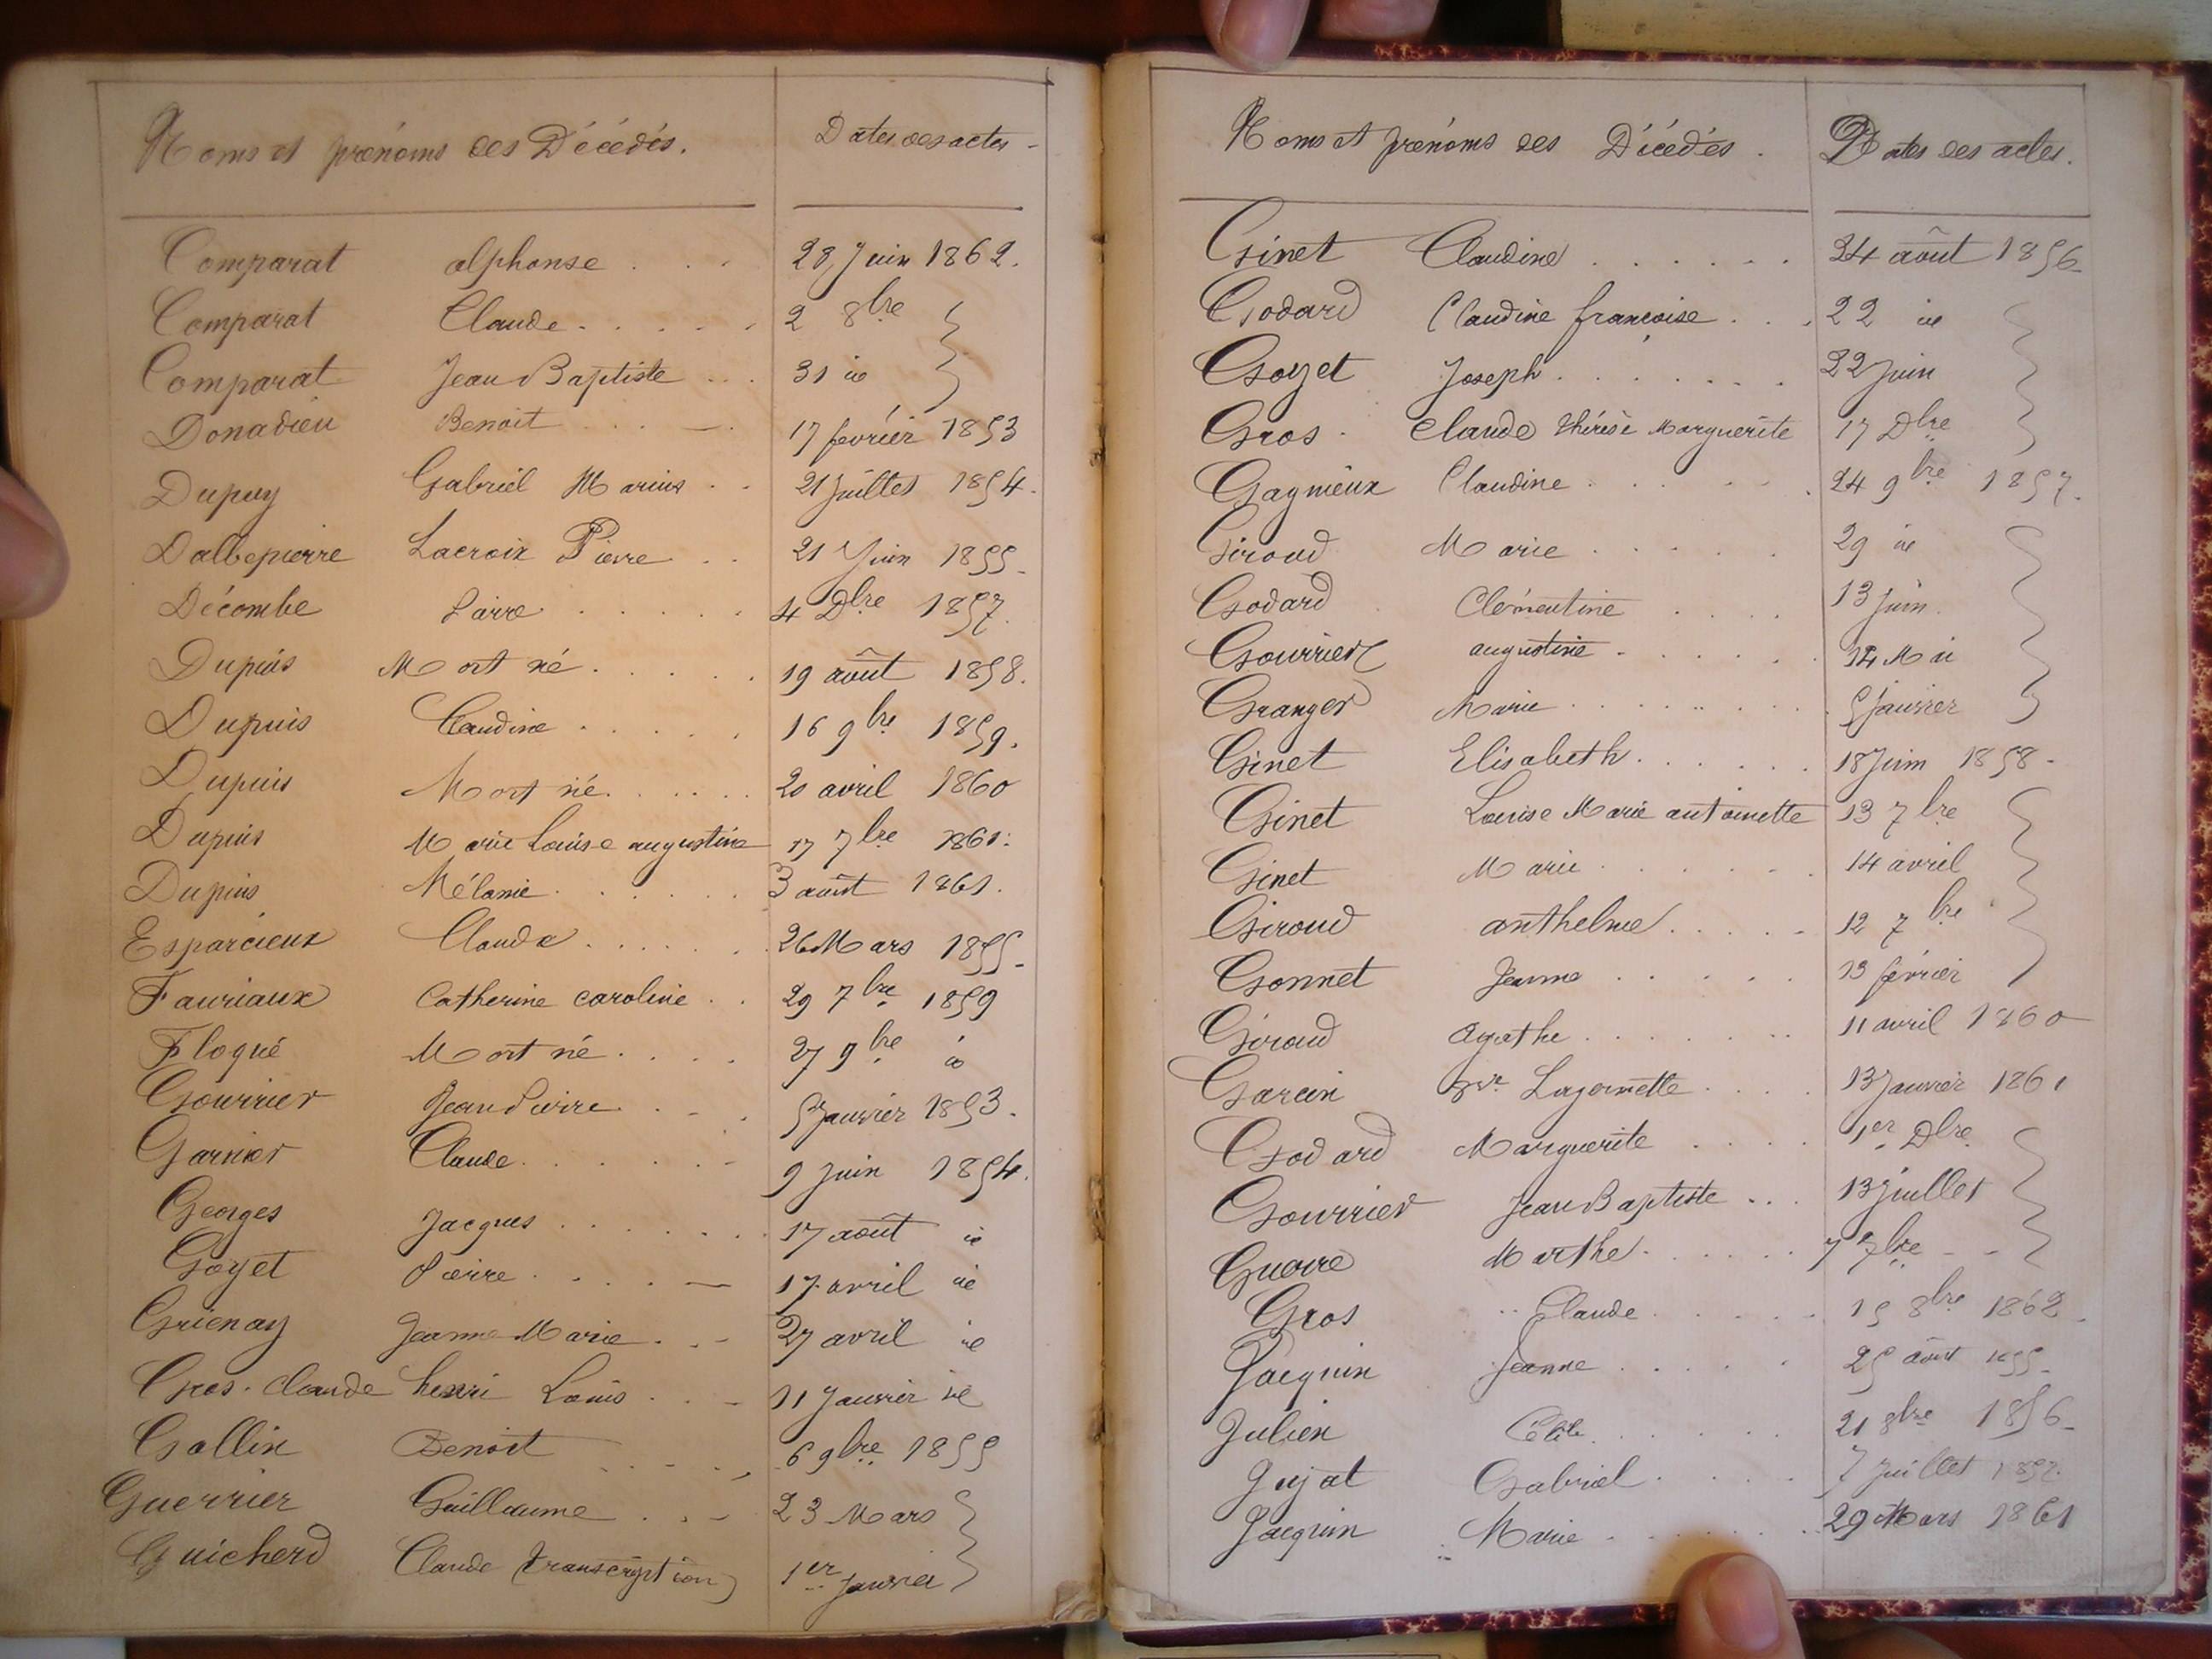 Noms et prénoms des Décédés. Dates des actes -
Comparat alphonse . . . 28 Juin 1862.
Comparat Claude . . . . . 2 8bre }
Comparat Jean Baptiste . . . 31 id }
Donadieu Benoit . . . - . 17 février 1853
Dupuy Gabriel Marius . . 21 Juillet 1854.
Dalbepierre Lacroix Pierre . . 21 Juin 1855 -
Décombe . . . . . 4 Dbre 1857.
Dupuis Mort né . . . . . 19 août 1858.
Dupuis Claudine . . . . . 16 9bre 1859.
Dupuis Mort né . . . . . 20 avril 1860
Dupuis Marie Louise augustine 17 7bre 1861.
Dupuis Mélanie . . . . . 3 août 1861.
Esparcieux Claude . . . . . . 26 Mars 1855 -
Fauriaux Catherine caroline . . 29 7bre 1859
Floqué Mort né . . . . 27 9bre id
Gourrier Jean Pierre . . - . 5 Janvier 1853.
Garnier Claude . . . . . . - 9 Juin 1854.
Georges Jacques . . . . . . 17 août id
Goyet Pierre . . . . . - 17 avril id
Grienay Jeanne Marie . . - 27 avril id
Gros-claude henri Louis . . - 11 Janvier id
Gallin Benoit . . . . 6 9bre 1855
Guerrier Guillaume . . - 23 Mars }
Guicherd Claude (transcription) 1er Janvier }
Noms et prénoms des Décédés. Dates des actes.
Ginet Claudine . . . . . . 24 août 1856
Godard Claudine françoise . . . 22 id
Goyet Joseph . . . . . . . 22 Juin
Gros - Claude Thérèse Marguerite 17 Dbre
Gagnieux Claudine . . . . . 24 9bre 1857.
Giroud Marie . . . . . 29 id
Godard Clémentine . . . . 13 Juin.
Gourrier augustine - . . . . . 14 Mai
Granger Marie . . . . . . . 5 Janvier
Ginet Elisabeth . . . . . . 18 Juin 1858 -
Ginet Louise Marie antoinette 13 7bre
Ginet Marie . . . . . . 14 avril
Giroud anthelme . . . . - 12 7bre
Gonnet Jeanne . . . . . 13 février
Giroud agathe . . . . . . . 11 avril 1860
Garcin . . . . 13 Janvier 1861
Godard Marguerite . . . . 1er Dbre
Gourrier Jean Baptiste . . . 13 Juillet
Marthe . . . . . . 7 7bre - -
Gros Claude . . . . . 15 8bre 1862.
Jacquin Jeanne . . . . . 25 août 1855 -
Julien . . . . . . 21 8bre 1856 -
Gujat Gabriel . . . . 7 Juillet
Jacquin Marie . . . . . . 29 Mars 1861